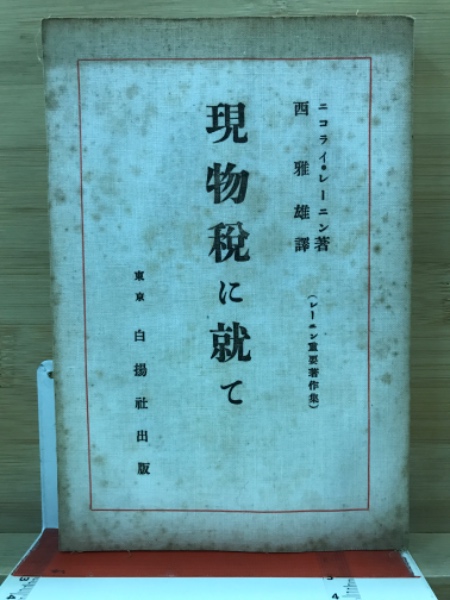 ニコライ・レーニン著
西雅雄譯
(レーニン重要著作集)
現物税に就て
東京 白揚社出版